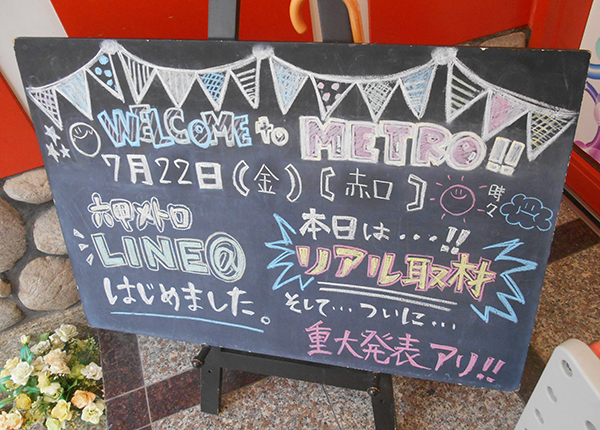 WELCOME to METRO!!
7月22日(金)[赤口]
時々
六甲メトロ
LINE@
はじめました。
本日は...!!
リアル取材
そして...ついに...
重大発表アリ!!